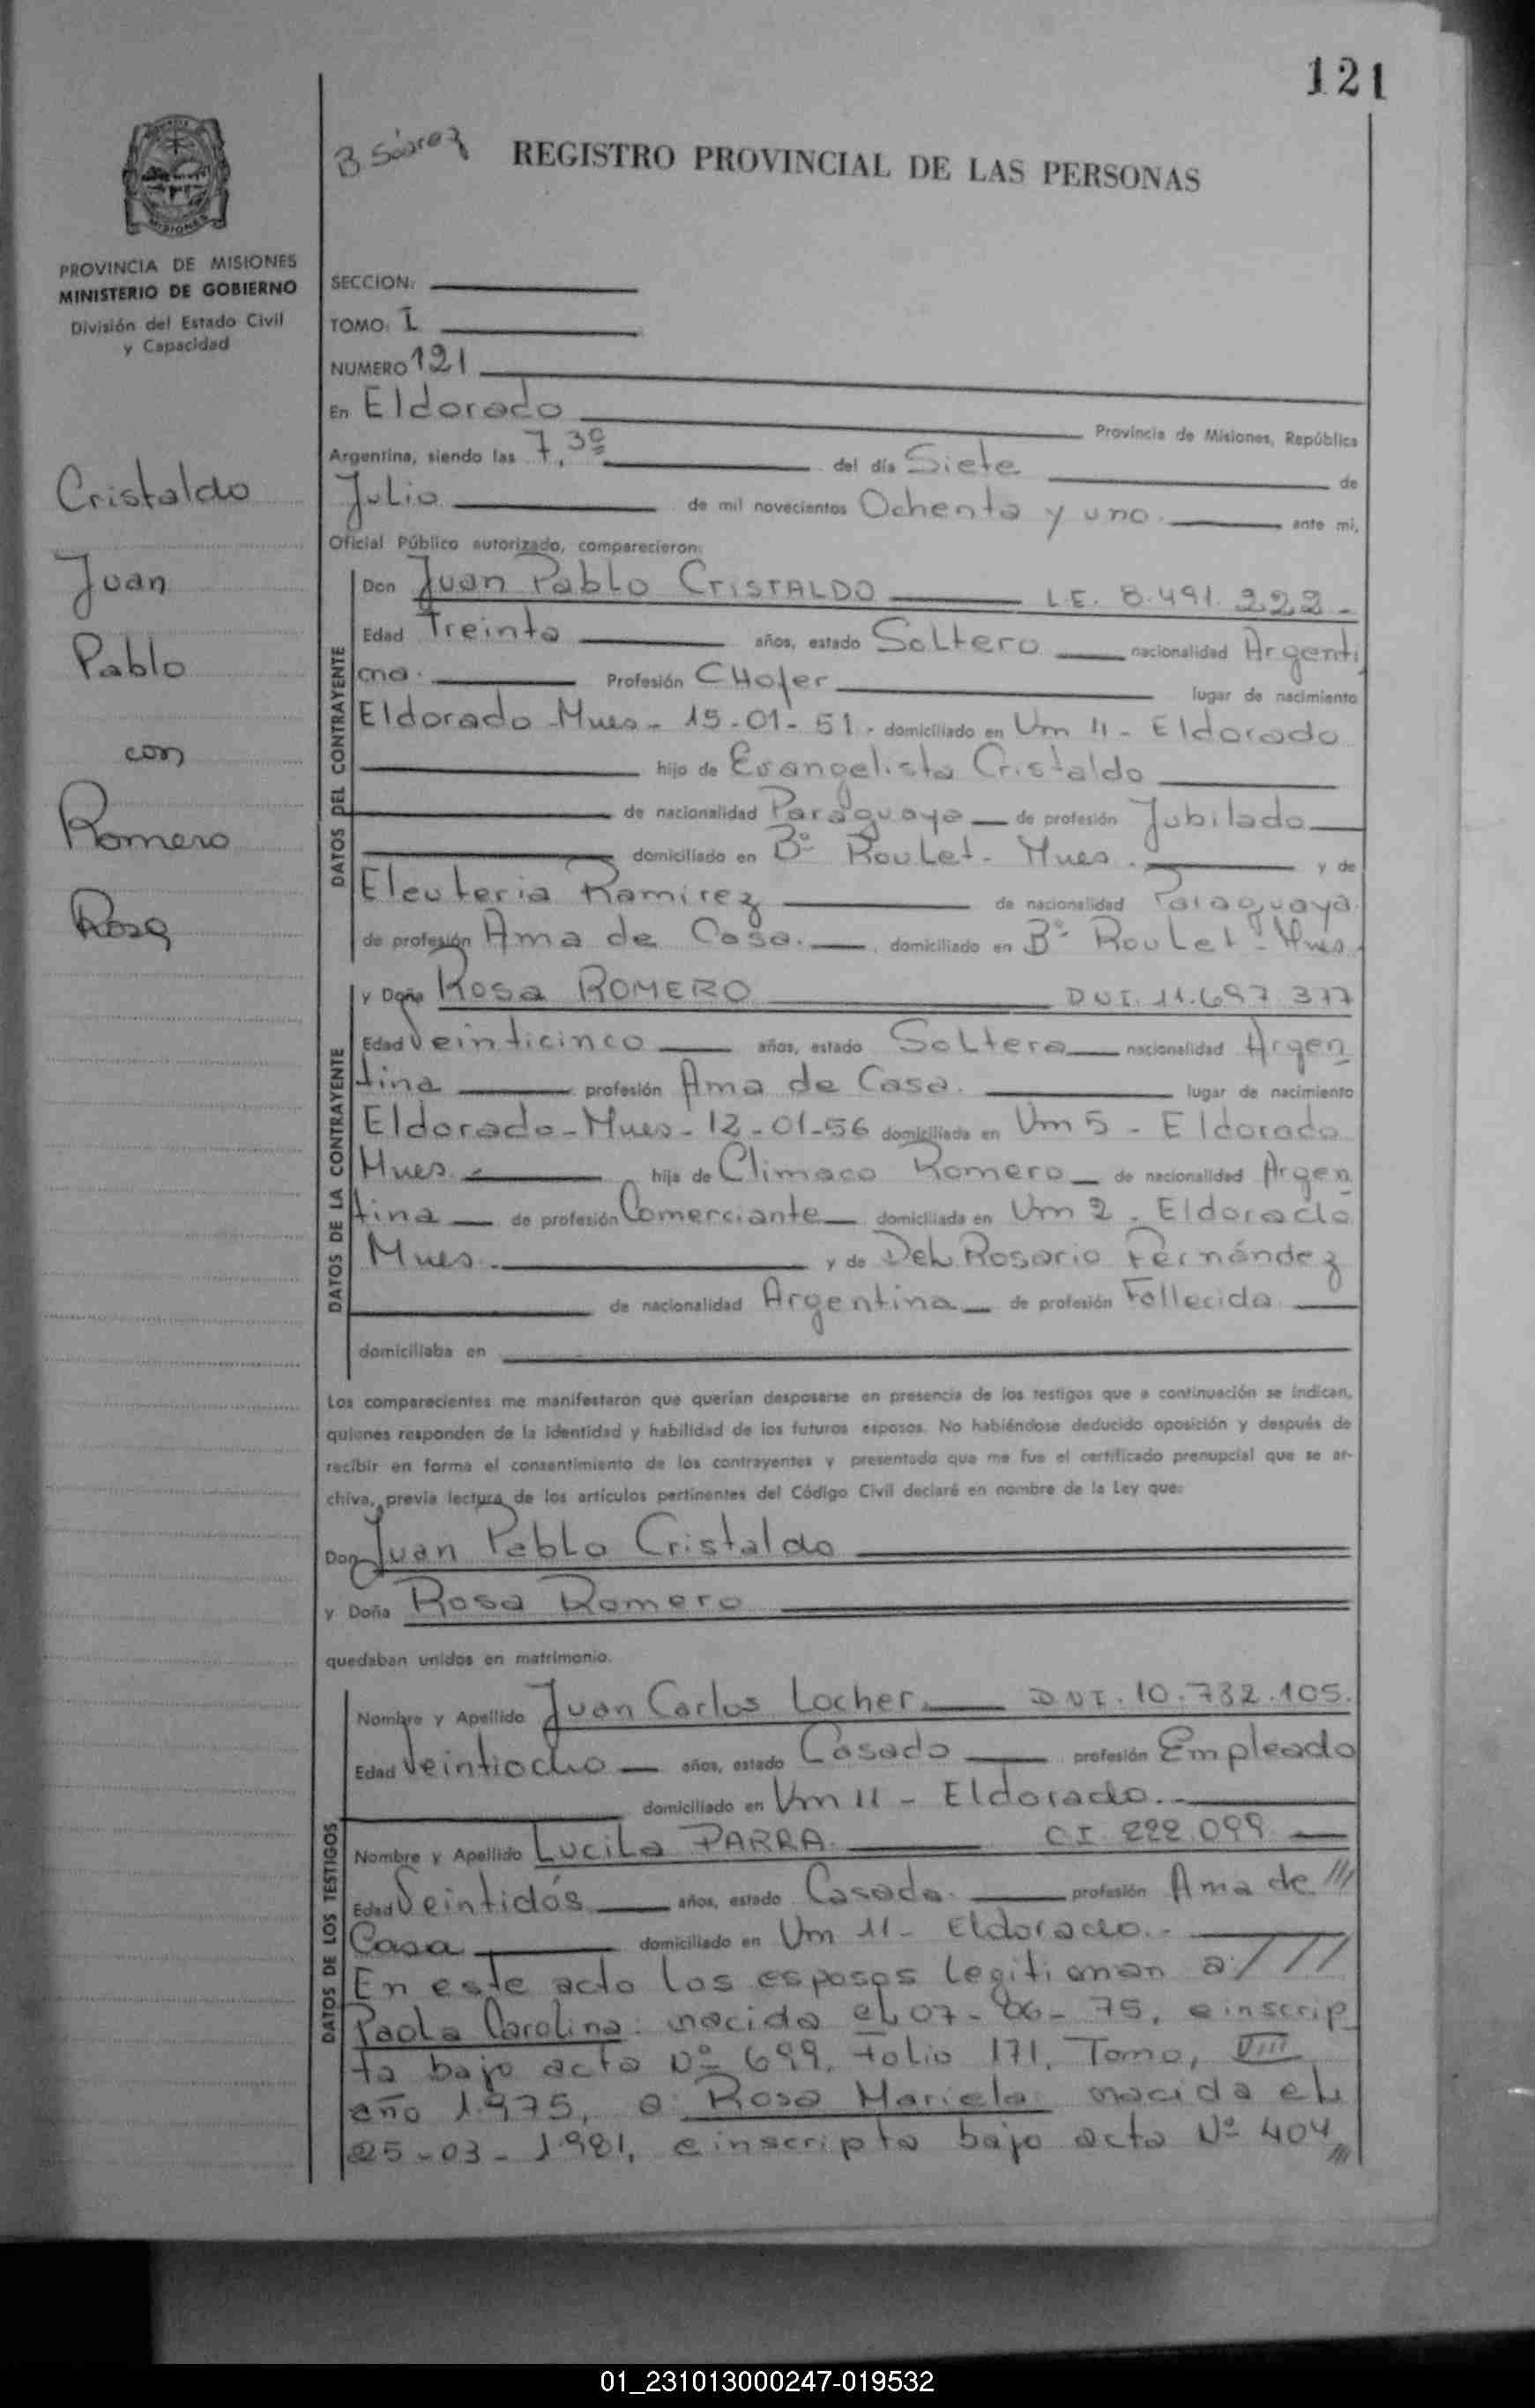 121
B Suárez REGISTRO PROVINCIAL DE LAS PERSONAS
MISIONES
PROVINCIA DE MISIONES
MINISTERIO DE GOBIERNO
División del Estado Civil
y Capacidad
SECCION:
TOMO: I
NUMERO 121
En Eldorado Provincia de Misiones, República
Argentina, siendo las 7,30 del día Siete de
Julio de mil novecientos Ochenta y uno. ante mi,
Oficial Público autorizado, comparecieron:
Cristaldo
Juan
Pablo
con
Romero
Rosa
DATOS DEL CONTRAYENTE
Don Juan Pablo CRISTALDO L.E. 8.491.222-
Edad Treinta años, estado Soltero nacionalidad Argenti
na. Profesión CHofer lugar de nacimiento
Eldorado-Mnes- 15-01-51. domiciliado en Km 11 - Eldorado
hijo de Evangelista Cristaldo
de nacionalidad Paraguaya de profesión Jubilado
domiciliado en Bº Roulet- Mnes. y de
Eleuteria Ramirez de nacionalidad Paraguaya.
de profesión Ama de Casa. domiciliado en Bº Roulet- Mnes.
DATOS DE LA CONTRAYENTE
y Doña Rosa ROMERO DNI. 11.697.377
Edad Veinticinco años, estado Soltera nacionalidad Argen
tina profesión Ama de Casa. lugar de nacimiento
Eldorado-Mnes- 12-01-56 domiciliada en Km 5 - Eldorado
Mnes. hija de Climaco Romero de nacionalidad Argen
tina de profesión Comerciante domiciliada en Km 2. Eldorado
Mnes. y de Del Rosario Fernández
de nacionalidad Argentina de profesión Fallecida
domiciliaba en
Los comparecientes me manifestaron que querían desposarse en presencia de los testigos que a continuación se indican,
quiénes responden de la identidad y habilidad de los futuros esposos. No habiéndose deducido oposición y después de
recibir en forma el consentimiento de los contrayentes y presentado que me fue el certificado prenupcial que se ar-
chiva, previa lectura de los artículos pertinentes del Código Civil declaré en nombre de la Ley que:
Don Juan Pablo Cristaldo
y Doña Rosa Romero
quedaban unidos en matrimonio.
DATOS DE LOS TESTIGOS
Nombre y Apellido Juan Carlos Locher. DNI. 10.732.105.
Edad Veintiocho años, estado Casado profesión Empleado
domiciliado en Km 11 - Eldorado.
Nombre y Apellido Lucila PARRA. C.I. 222.099
Edad Veintidós años, estado Casada. profesión Ama de ///
Casa domiciliado en Km 11- Eldorado.-
En este acto los esposos legitiman a: ///
Paola Carolina: nacida el 07-06-75, e inscrip
ta bajo acta Nº 699, Folio 171, Tomo, VIII
año 1.975, a Rosa Mariela: nacida el
25-03-1.981, e inscripta bajo acta Nº 404 ///
01_231013000247-019532